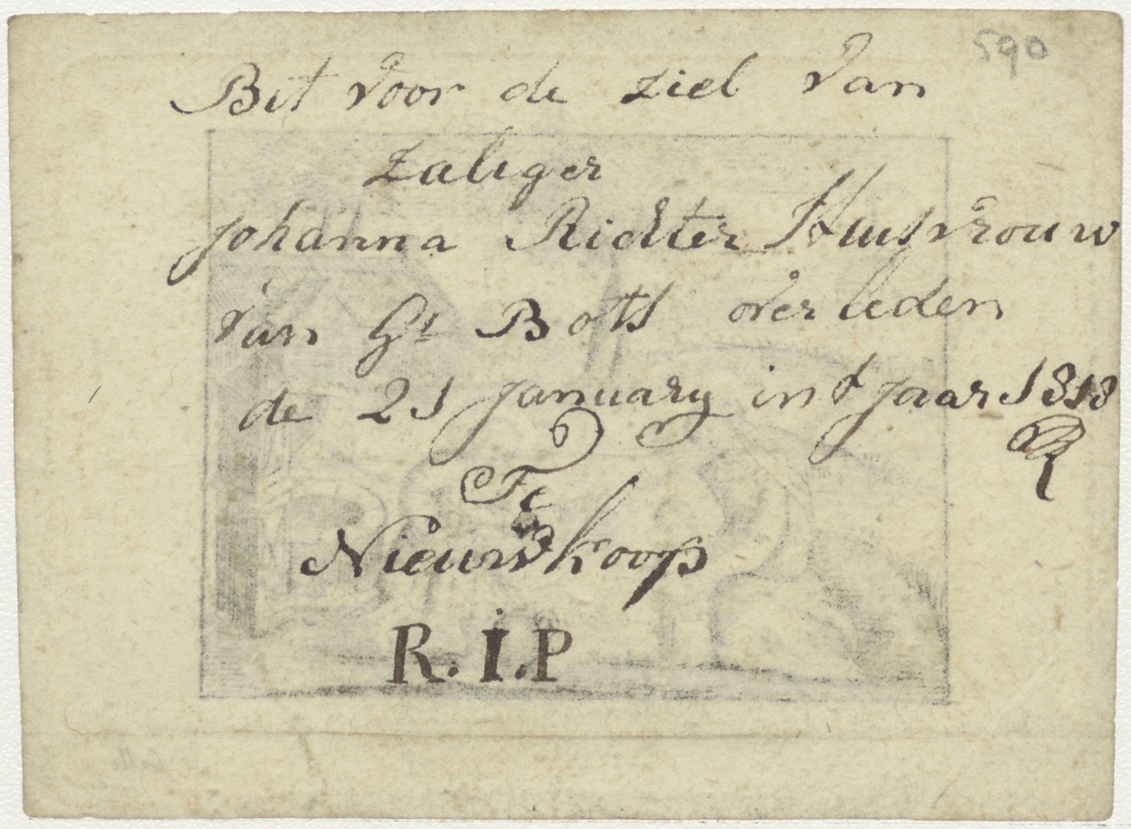 590
Bit voor de ziel van
zaliger
Johanna Richter Huijsvrouw
van Gt Bots overleden
de 21 January int Jaar 1818
Te
Nieuwkoop
R.I.P